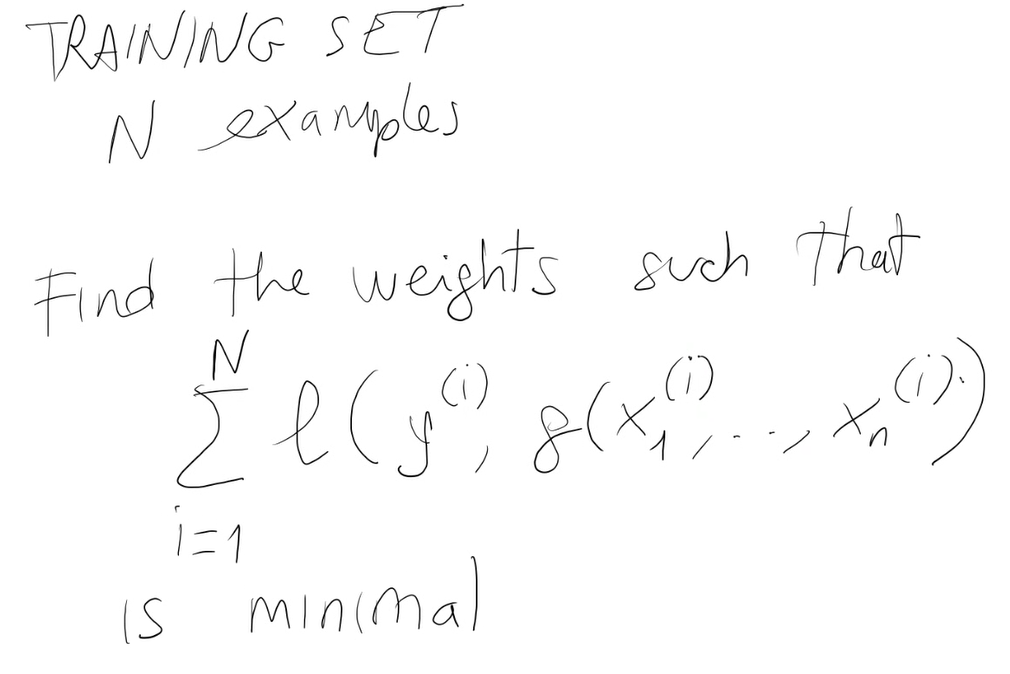 TRAINING SET
N examples
Find the weights such that
N
∑ l(y^(i), g(x_1^(i), ..., x_n^(i)))
i=1
is minimal